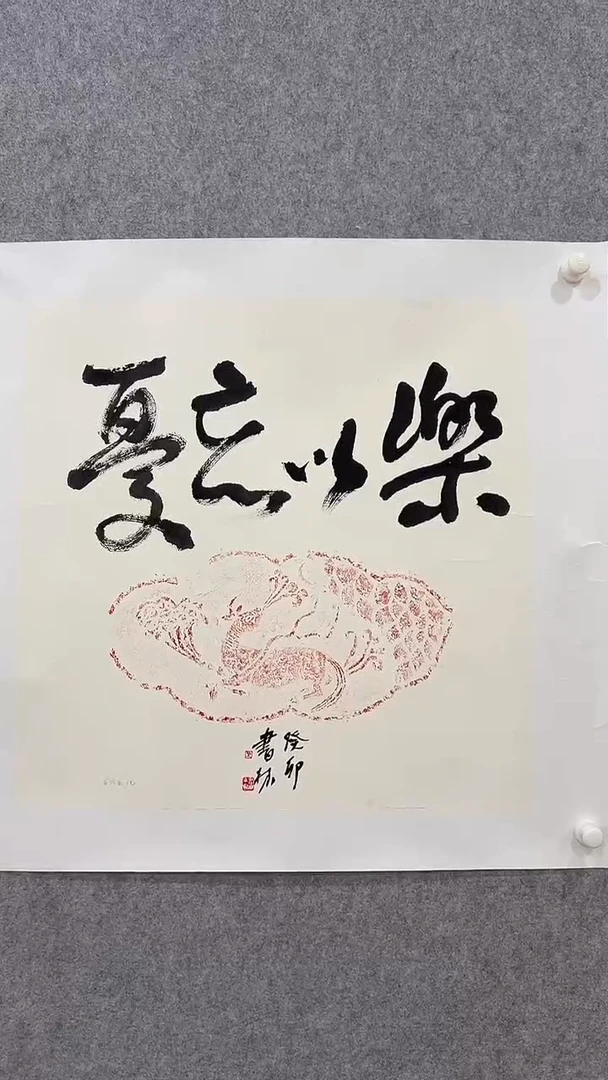 樂以忘憂
癸卯
書林